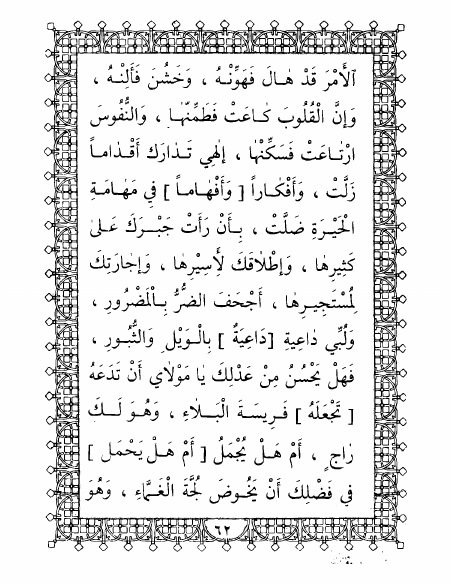 ٱلأَمْرَ قَدْ هٰالَ فَهَوِّنْهُ ، وَخَشُنَ فَأَلِنْهُ ،
وَإِنَّ الْقُلُوبَ كٰاعَتْ فَطَمِّنْهٰا ، وَالنُّفُوسَ
ارْتٰاعَتْ فَسَكِّنْهٰا ، إِلٰهِي تَدٰارَكْ أَقْدٰاماً
زَلَّتْ ، وَأَفْكٰاراً [ وَأَفْهٰاماً ] فِي مَهٰامَةِ
الْحَيْرَةِ ضَلَّتْ ، بِأَنْ رَأَتْ جَبْرَكَ عَلىٰ
كَثِيرِهٰا ، وَإِطْلٰاقَكَ لِأَسِيْرِهٰا ، وَإِجٰارَتِكَ
لِمُسْتَجِيرِهٰا ، أَجْحَفَ الضُّرُّ بِالْمَضْرُورِ ،
وَلُبِّي دٰاعِيةِ [دٰاعِيَةٌ ] بِالْوَيْلِ وَالثُّبُورِ ،
فَهَلْ يَحْسُنُ مِنْ عَدْلِكَ يٰا مَوْلٰايَ أَنْ تَدَعَهُ
[ تَجْعَلَهُ ] فَرِيسَةَ الْبَلٰاءِ ، وَهُوَ لَكَ
رٰاجٍ ، أَمْ هَلْ يُجْمَلُ [ أَمْ هَلْ يَحْمَل ]
فِي فَضْلِكَ أَنْ يَخُوضَ لُجَّةَ الْغَمّٰاءِ ، وَهُوَ
٦٢